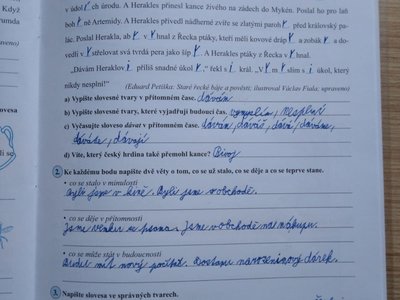 Když
v údolích úborů. A Herakles přinesl kance živého na zádech do Mykén. Poslal ho pro laň
boh ně Artemidy. A Herakles přivedl nádherné zvíře se zlatými parohy před královský pa-
lác. Poslal Herakla, aby vyhnal z Řecka ptáky, kteří měli kovové drápy a zobáky a do-
vedli vystřelovat svá tvrdá pera jako šípy. A Herakles ptáky z Řecka vyhnal.
„Dávám Heraklovi příliš snadné úkoly," řekl si král. „Vymyslím si úkol, který
nikdy nesplní!"
(Eduard Petiška: Staré řecké báje a pověsti; ilustroval Václav Fiala; upraveno)
a) Vypište sloveso v přítomném čase. dávám
b) Vypište slovesa, která vyjadřují budoucí čas. vymyslím, nesplní
c) Vyčasujte sloveso dávat v přítomném čase. dávám, dáváš, dává, dáváme,
dáváte, dávají
d) Víte, který český hrdina také přemohl kance? Bivoj
2. Ke každému bodu napište dvě věty o tom, co se už stalo, co se děje a co se teprve stane.
• co se stalo v minulosti
Byli jsme v kině. Byli jsme v obchodě.
• co se děje v přítomnosti
Jsme venku se psama. Jsme v obchodě na nákupu.
• co se může stát v budoucnosti
Budu mít nový počítač. Dostanu narozeninový dárek.
3. Napište slovesa ve správných tvarech.